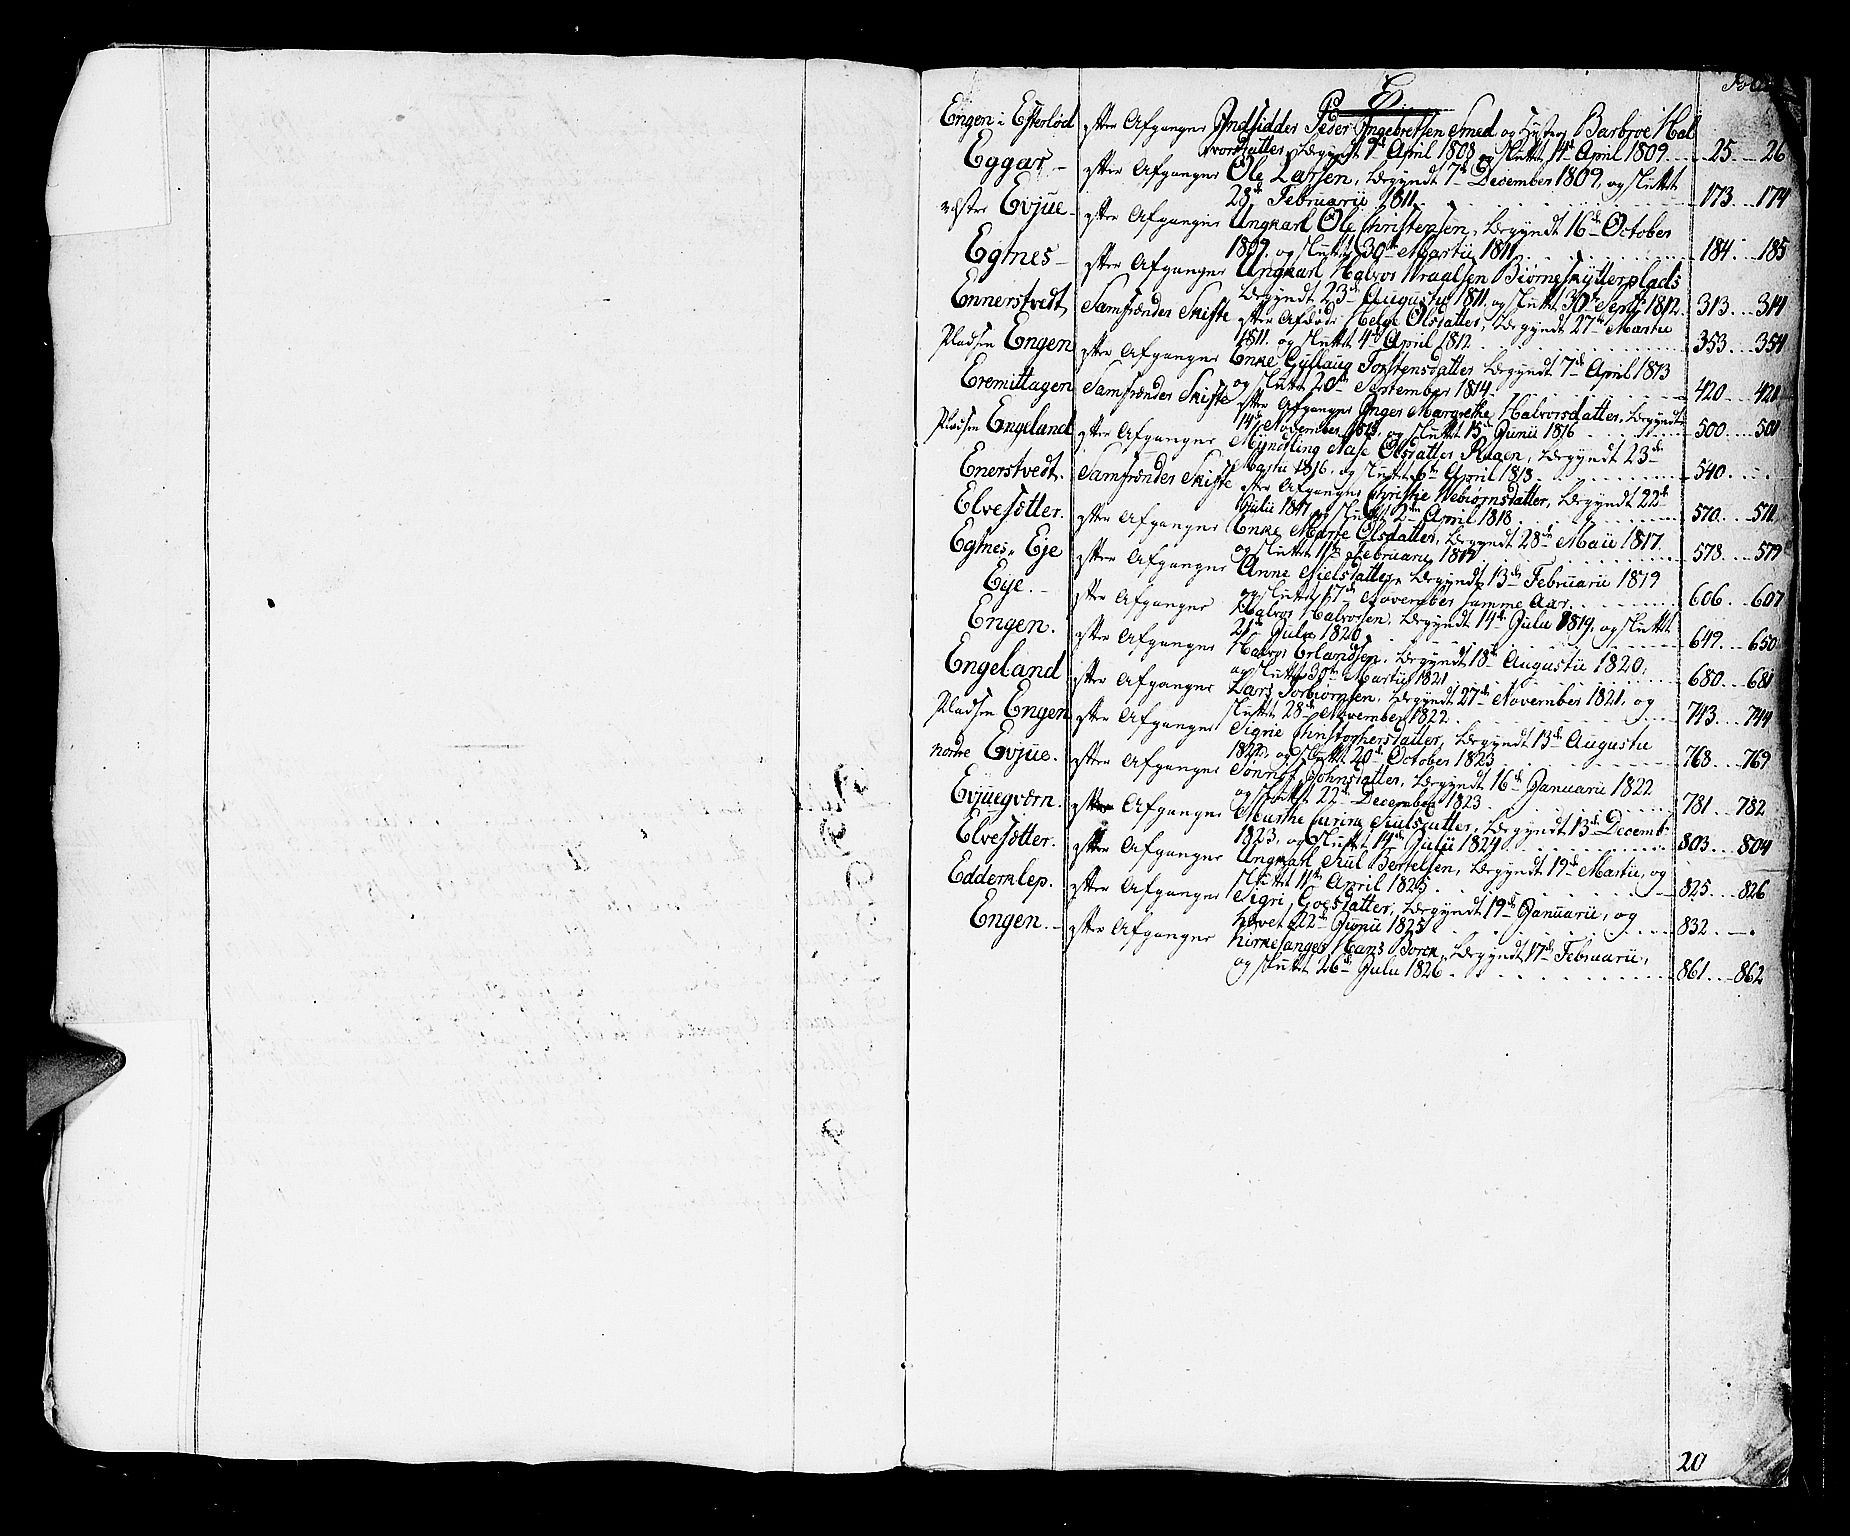 E
Folio
Engen i Efterlød efter Afgangne Indsidder Peder Ingebretsen Smed og Hustro Barbroe Hal
vorsdatter, begyndt 7de April 1808 og sluttet 14de April 1809 .... 25 ... 26
Eggar - efter Afgangne Ole Larsen, begyndt 7de December 1809, og sluttet
28de Februarii 1811 .... 173 ... 174
væstre Evjue - efter Afgangne Ungkarl Ole Christensen, begyndt 16de October
1809. og sluttet 30te Martii 1811 .... 184 ... 185
Egnes - efter Afgangne Ungkarl Halvor Wraalsen Biørneskytterplads
begyndt 23de Augustii 1811. og sluttet 30te Septr 1812. 313 ... 314
Ennerstvedt Samfrænder Skifte efter Afdøde Helge Olsdatter, begyndt 27de Martii
1811. og sluttet 4de April 1812 .... 353 ... 354
Pladsen Engen efter Afgangne Enke Gullaug Torstensdatter begyndt 7de April 1813
og sluttet 20de September 1814 .... 420 ... 421
Eremittagen Samfrænder Skifte efter Afgangne Inger Margrethe Halvorsdatter, begyndt
14de November 1815, og sluttet 15de Junii 1816 .... 500 ... 501
Pladsen Engeland efter Afgangne Myndling Aase Olsdatter Raaen, begyndt 23de
Martii 1816, og sluttet 6te April 1818 .... 540 ...
Enerstvedt. Samfrænder Skifte efter Afgangne Christie Webiørnsdatter, begyndt 22de
Julii 1817 og sluttet 2den April 1818 .... 570 ... 571
Elvesötter. efter Afgangne Enke Marte Olsdatter, begyndt 28de Maii 1817.
og sluttet 11te Februarii 1817 .... 578 ... 579
Egnes Eje efter Afgangne Anne Nielsdatter, begyndt 13de Februarii 1819
og sluttet 17de November samme Aar .... 606 ... 607
Eje. - efter Afgangne Halvor Halvorsen, begyndt 14de Julii 1819. og sluttet
21de Julii 1820 .... 649 ... 650
Engen. efter Afgangne Halvor Erlandsen, begyndt 18de Augustii 1820,
og sluttet 30te Martii 1821 .... 680 ... 681
Engeland efter Afgangne Lars Torbiørnsen, begyndt 27de November 1821, og
sluttet 28de November 1822 .... 743 ... 744
Pladsen Engen efter Afgangne Sigrie Christophersdatter, begyndt 13de Augustii
1822, og sluttet 20de October 1823 .... 768 ... 769
nordre Evjue. efter Afgangne Tønnof Johnsdatter, begyndt 16de Januarii 1822
og sluttet 22de December 1823 .... 781 ... 782
Evjuegværn. efter Afgangne Marthe Kulsdatter, begyndt 13de Decemb:
1823, og sluttet 14de Julii 1824 .... 803 ... 804
Elvesötter. efter Afgangne Ungkarl Kiul Bertelsen, begyndt 19de Martii, og
sluttet 11te April 1825 .... 825 ... 826
Edderklep. efter Afgangne Sigri Goesdatter, begyndt 19de Januarii, og
hævet 22de Junii 1825 .... 832 ...
Engen. - efter Afgangne Kirkesanger Hans Borch, begyndt 17de Februarii,
og sluttet 26de Julii 1826 .... 861 ... 862
20